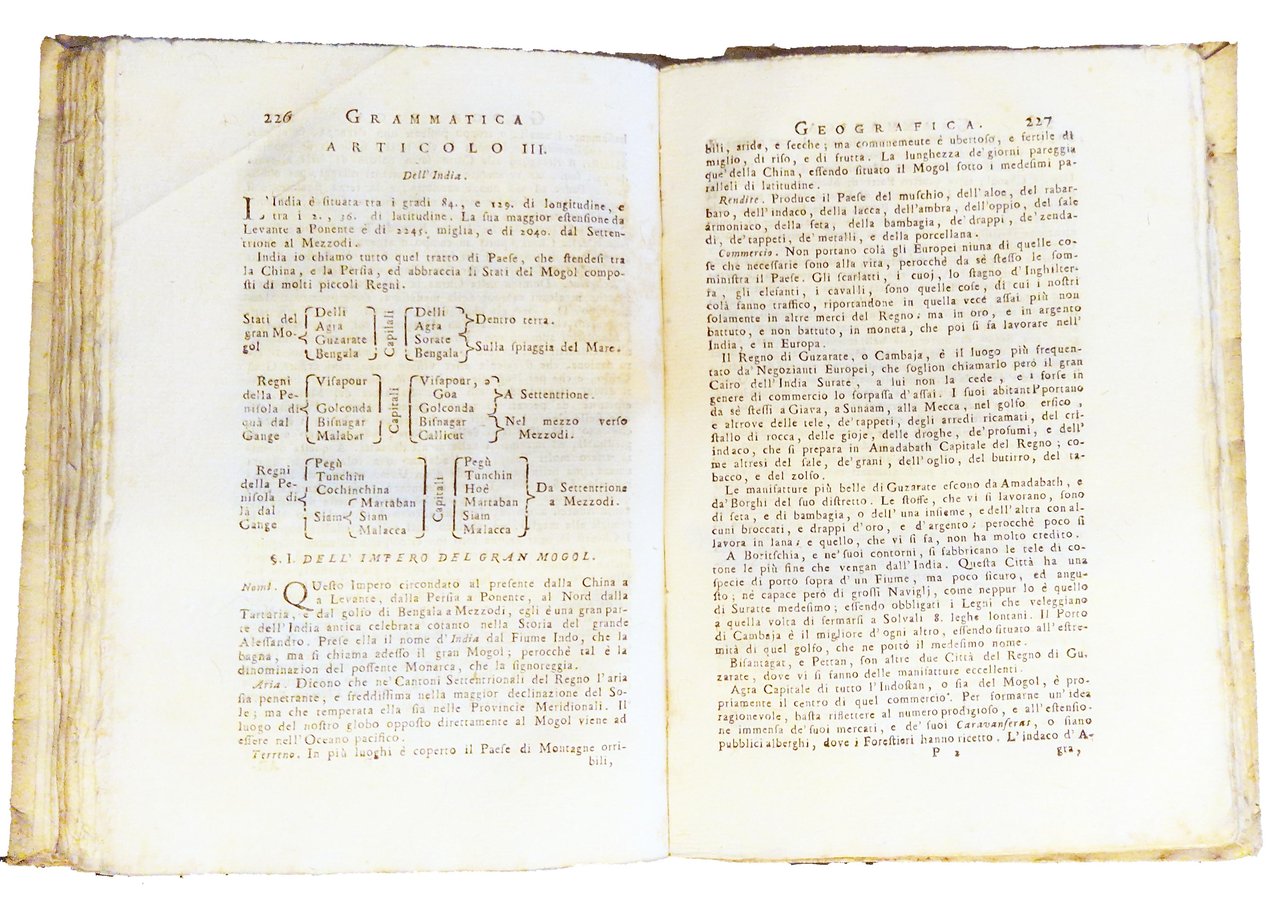 226 GRAMMATICA
ARTICOLO III.
Dell'India.
L'India è situata tra i gradi 84., e 129. di longitudine, e
tra i 2., 36. di latitudine. La sua maggior estensione da
Levante a Ponente è di 2245. miglia, e di 2040. dal Setten-
trione al Mezzodi.
India io chiamo tutto quel tratto di Paese, che stendesi tra
la China, e la Persia, ed abbraccia li Stati del Mogol compo-
sti di molti piccoli Regni.
Stati del gran Mo-gol
Delli
Agra
Guzarate
Bengala
Capitali
Delli
Agra
Sorate
Bengala
Dentro terra.
Sulla spiaggia del Mare.
Regni della Pe-nisola di quà dal Gange
Visapour
Golconda
Bisnagar
Malabar
Capitali
Visapour, o
Goa
Golconda
Bisnagar
Callicut
A Settentrione.
Nel mezzo verso
Mezzodi.
Regni della Pe-nisola di là dal Gange
Pegù
Tunchin
Cochinchina
Siam
Martaban
Siam
Malacca
Capitali
Pegù
Tunchin
Hoè
Martaban
Siam
Malacca
Da Settentrione
a Mezzodi.
§. I. DELL' IMPERO DEL GRAN MOGOL.
Nomi. QUesto Impero circondato al presente dalla China a
a Levante, dalla Persia a Ponente, al Nord dalla
Tartaria, e dal golfo di Bengala a Mezzodi, egli è una gran par-
te dell'India antica celebrata cotanto nella Storia del grande
Alessandro. Prese ella il nome d'India dal Fiume Indo, che la
bagna, ma si chiama adesso il gran Mogol; perocchè tal è la
dinominazion del possente Monarca, che la signoreggia.
Aria. Dicono che ne' Cantoni Settentrionali del Regno l'aria
sia penetrante, e freddissima nella maggior declinazione del So-
le; ma che temperata ella sia nelle Provincie Meridionali. Il
luogo del nostro globo opposto direttamente al Mogol viene ad
essere nell'Oceano pacifico.
Terreno. In più luoghi è coperto il Paese di Montagne orri-
bili,
GEOGRAFICA. 227
bili, aride, e secche; ma comunemeute è ubertoso, e fertile di
miglio, di riso, e di frutta. La lunghezza de'giorni pareggia
que' della China, essendo situato il Mogol sotto i medesimi pa-
ralleli di latitudine.
Rendite. Produce il Paese del muschio, dell'aloe, del rabar-
baro, dell'indaco, della lacca, dell'ambra, dell'oppio, del sale
armoniaco, della seta, della bambagia, de'drappi, de'zenda-
di, de'tappeti, de'metalli, e della porcellana.
Commercio. Non portano colà gli Europei niuna di quelle co-
se che necessarie sono alla vita, perocchè da sè stesso le som-
ministra il Paese. Gli scarlatti, i cuoj, lo stagno d'Inghilter-
ra, gli elefanti, i cavalli, sono quelle cose, di cui i nostri
colà fanno traffico, riportandone in quella vece assai più non
solamente in altre merci del Regno; ma in oro, e in argento
battuto, e non battuto, in moneta, che poi si fa lavorare nell'
India, e in Europa.
Il Regno di Guzarate, o Cambaja, è il luogo più frequen-
tato da'Negozianti Europei, che soglion chiamarlo però il gran
Cairo dell'India Surate, a lui non la cede, e forse in
genere di commercio lo sorpassa d'assai. I suoi abitant portano
da sè stessi a Giava, a Sunaam, alla Mecca, nel golfo ersico,
e altrove delle tele, de'tappeti, degli arredi ricamati, del cri-
stallo di rocca, delle gioje, delle droghe, de'profumi, e dell'
indaco, che si prepara in Amadabath Capitale del Regno; co-
me altresì del sale, de'grani, dell'oglio, del butirro, del ta-
bacco, e del zolfo.
Le manifatture più belle di Guzarate escono da Amadabath, e
da'Borghi del suo distretto. Le stoffe, che vi si lavorano, sono
di seta, e di bambagia, o dell'una insieme, e dell'altra con al-
cuni broccati, e drappi d'oro, e d'argento; perocchè poco si
lavora in lana; e quello, che vi si fa, non ha molto credito.
A Boritschia, e ne'suoi contorni, si fabbricano le tele di co-
tone le più fine che vengan dall'India. Questa Città ha una
specie di porto sopra d'un Fiume, ma poco sicuro, ed angu-
sto; nè capace però di grossi Naviglj, come neppur lo è quello
di Suratte medesimo; essendo obbligati i Legni che veleggiano
a quella volta di fermarsi a Solvali 8. leghe lontani. Il Porto
di Cambaja è il migliore d'ogni altro, essendo situato all'estre-
mità di quel golfo, che ne portò il medesimo nome.
Bisantagat, e Pettan, son altre due Città del Regno di Gu-
zarate, dove vi si fanno delle manifatture eccellenti.
Agra Capitale di tutto l'Indostan, o sia del Mogol, è pro-
priamente il centro di quel commercio. Per formarne un'idea
ragionevole, basta riflettere al numero prodigioso, e all'estensio-
ne immensa de'suoi mercati, e de' suoi Caravanserat, o siano
pubblici alberghi, dove i Forestieri hanno ricetto. L'indaco d'A-
P 2 gra,